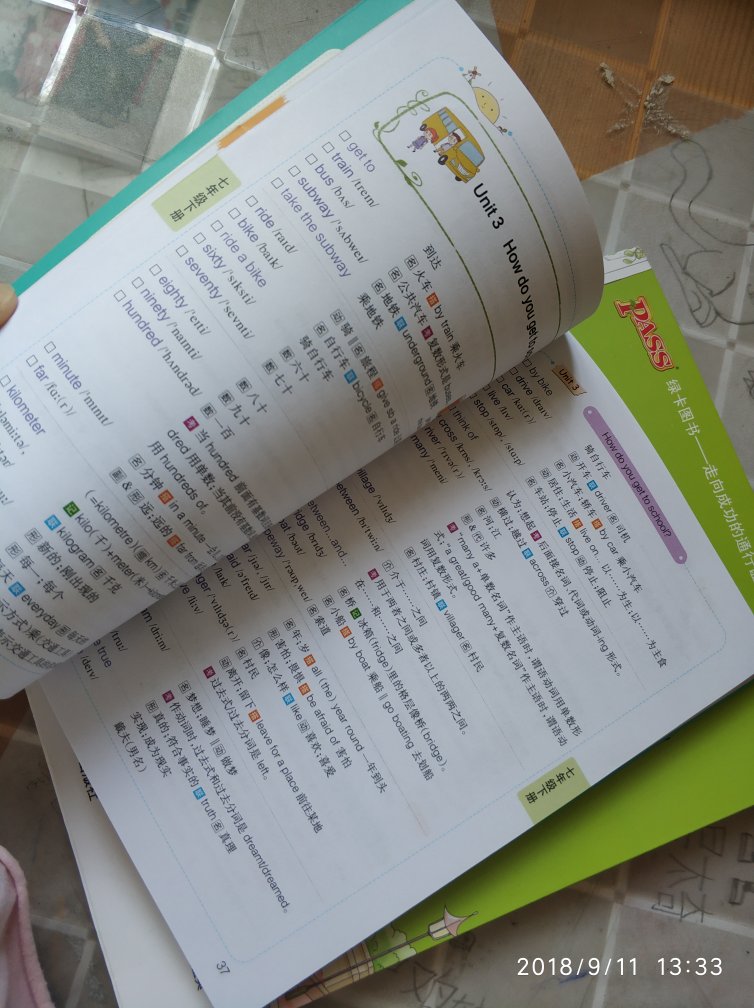 七年级下册
Unit 3 How do you get to
get to 到达
train /treɪn/ 名 火车 短 by train 乘火车
bus /bʌs/ 名 公共汽车
subway /ˈsʌbweɪ/ 名 地铁 underground
take the subway 乘地铁
ride /raɪd/ 动 骑 ‖ 名 旅程 give sb a ride
bike /baɪk/ 名 自行车 bicycle 自行车
ride a bike 骑自行车
sixty /ˈsɪksti/ 数 六十
seventy /ˈsevnti/ 数 七十
eighty /ˈeɪti/ 数 八十
ninety /ˈnaɪnti/ 数 九十
hundred /ˈhʌndrəd/ 数 一百
考 当hundred前面有
dred用单数;
用hundreds of。
minute /ˈmɪnɪt/ 名 分钟 in a minute
far /fɑː(r)/ 副 & 形 远;远的
kilometer
(=kilometre)(缩km)
记 kilo(千)+meter(米)
kilogram 名 千克
形 新的;刚出现的
形 每一;每个
everyday
Unit 3
How do you get to school?
by bike 骑自行车
drive /draɪv/ 动 开车 driver 名 司机
car /kɑː(r)/ 名 小汽车;轿车 by car 乘小汽车
live /lɪv/ 动 居住;生活 live on 以……为生;以……为主食
stop /stɒp/, /stɑːp/ 名 车站;停止 stop 动 停止;阻止
think of 认为;想起 后面接名词、代词或动词-ing形式。
cross /krɒs/, /krɔːs/ 动 横过;越过 across 介 穿过
river /ˈrɪvə(r)/ 名 河;江
many /ˈmeni/ 形 & 代 许多
“many a+单数名词”作主语时,谓语动词用单数形
式。“a great/good many+复数名词”作主语时,谓语动
词用复数形式。
village /ˈvɪlɪdʒ/ 名 村庄;村镇 villager 名 村民
between /bɪˈtwiːn/ 介 介于……之间
用于两者之间或多者以上的两两之间。
between...and... 在……和……之间
bridge /brɪdʒ/ 名 桥 记 冰箱(fridge)里的格层像桥(bridge)。
boat /bəʊt/ 名 小船 by boat 乘船 ‖ go boating 去划船
ropeway /ˈrəʊpweɪ/ 名 索道
year /jɪə/, /jɪr/ 名 年;岁 all (the) year round 一年到头
afraid /əˈfreɪd/ 形 害怕;畏惧 be afraid of 害怕
like /laɪk/ 介 像;怎么样 like 动 喜欢;喜爱
villager /ˈvɪlɪdʒə(r)/ 名 村民
leave /liːv/ 动 离开;留下 leave for a place 前往某地
过去式/过去分词是left。
dream /driːm/ 名 梦想;睡梦 ‖ 动 做梦
作动词时,过去式和过去分词是dreamt/dreamed。
true /truː/ 形 真的;符合事实的 truth 名 真理
come true 实现;成为现实
戴夫(男名)
七年级下册
37
PASS
绿卡图书——走向成功的通行
2018/9/11 13:33